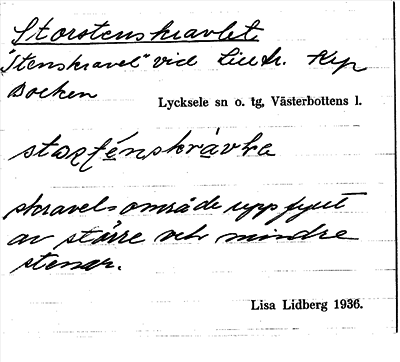 Storstenskravlet
"Stenskravel" vid Lill
Bocken
Lycksele sn o. tg, Västerbottens l.
skravelområde uppfyllt
av större och mindre
stenar.
Lisa Lidberg 1936.